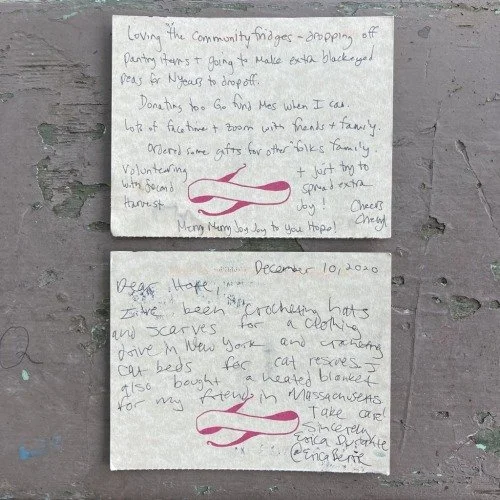 Loving the Community fridges - dropping off
pantry items + going to make extra blackeyed
peas for NYears to dropoff.
Donating too Go fund Mes when I can.
Lots of facetime + zoom with friends + family.
Ordered some gifts for other folks family
Volunteering + Just try to
with Second spread extra
Harvest Joy!
Cheers
Cheryl
Merry Merry Joy Joy to You Hope!
December 10, 2020
Dear Hope,
I've been crocheting hats
and scarves for a clothing
drive in New York and crocheting
cat beds for cat resives. I
also bought a heated blanket
for my friend in Massachusetts
Take care!
Sincerely
Erica
@EricaBerik